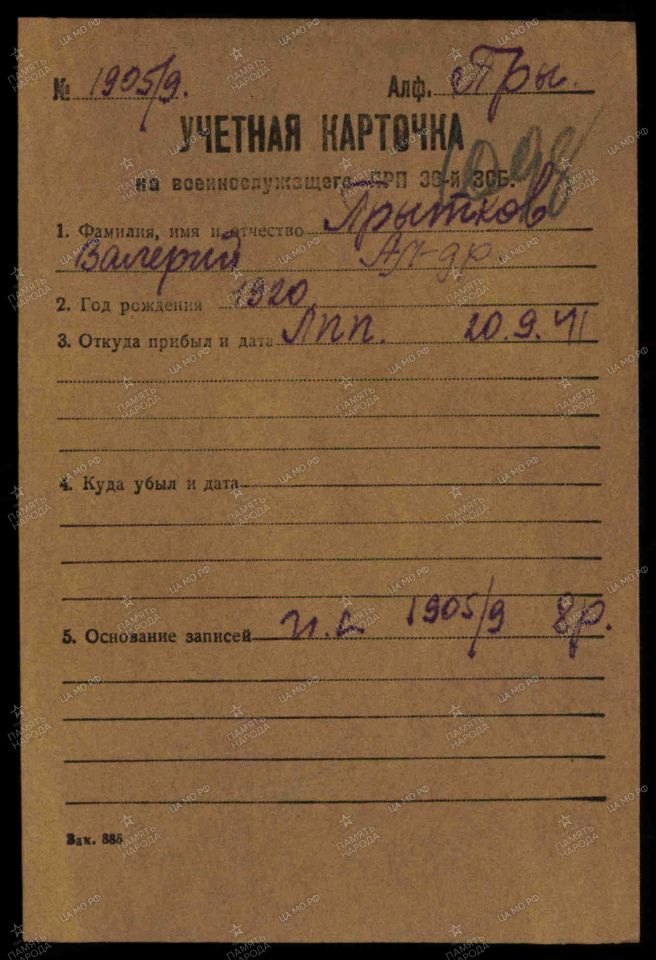 № 1905/9. Алф. Пры.
УЧЕТНАЯ КАРТОЧКА
1098
на военнослужащего ПРП 36-й ЗСБ.
1. Фамилия, имя и отчество Прытков
Валерий Ал-др.
2. Год рождения 1920
3. Откуда прибыл и дата ЛПП. 20.9.41
4. Куда убыл и дата
5. Основание записей 1905/9 8р.
Зак. 885
ПАМЯТЬ НАРОДА
ЦА МО РФ